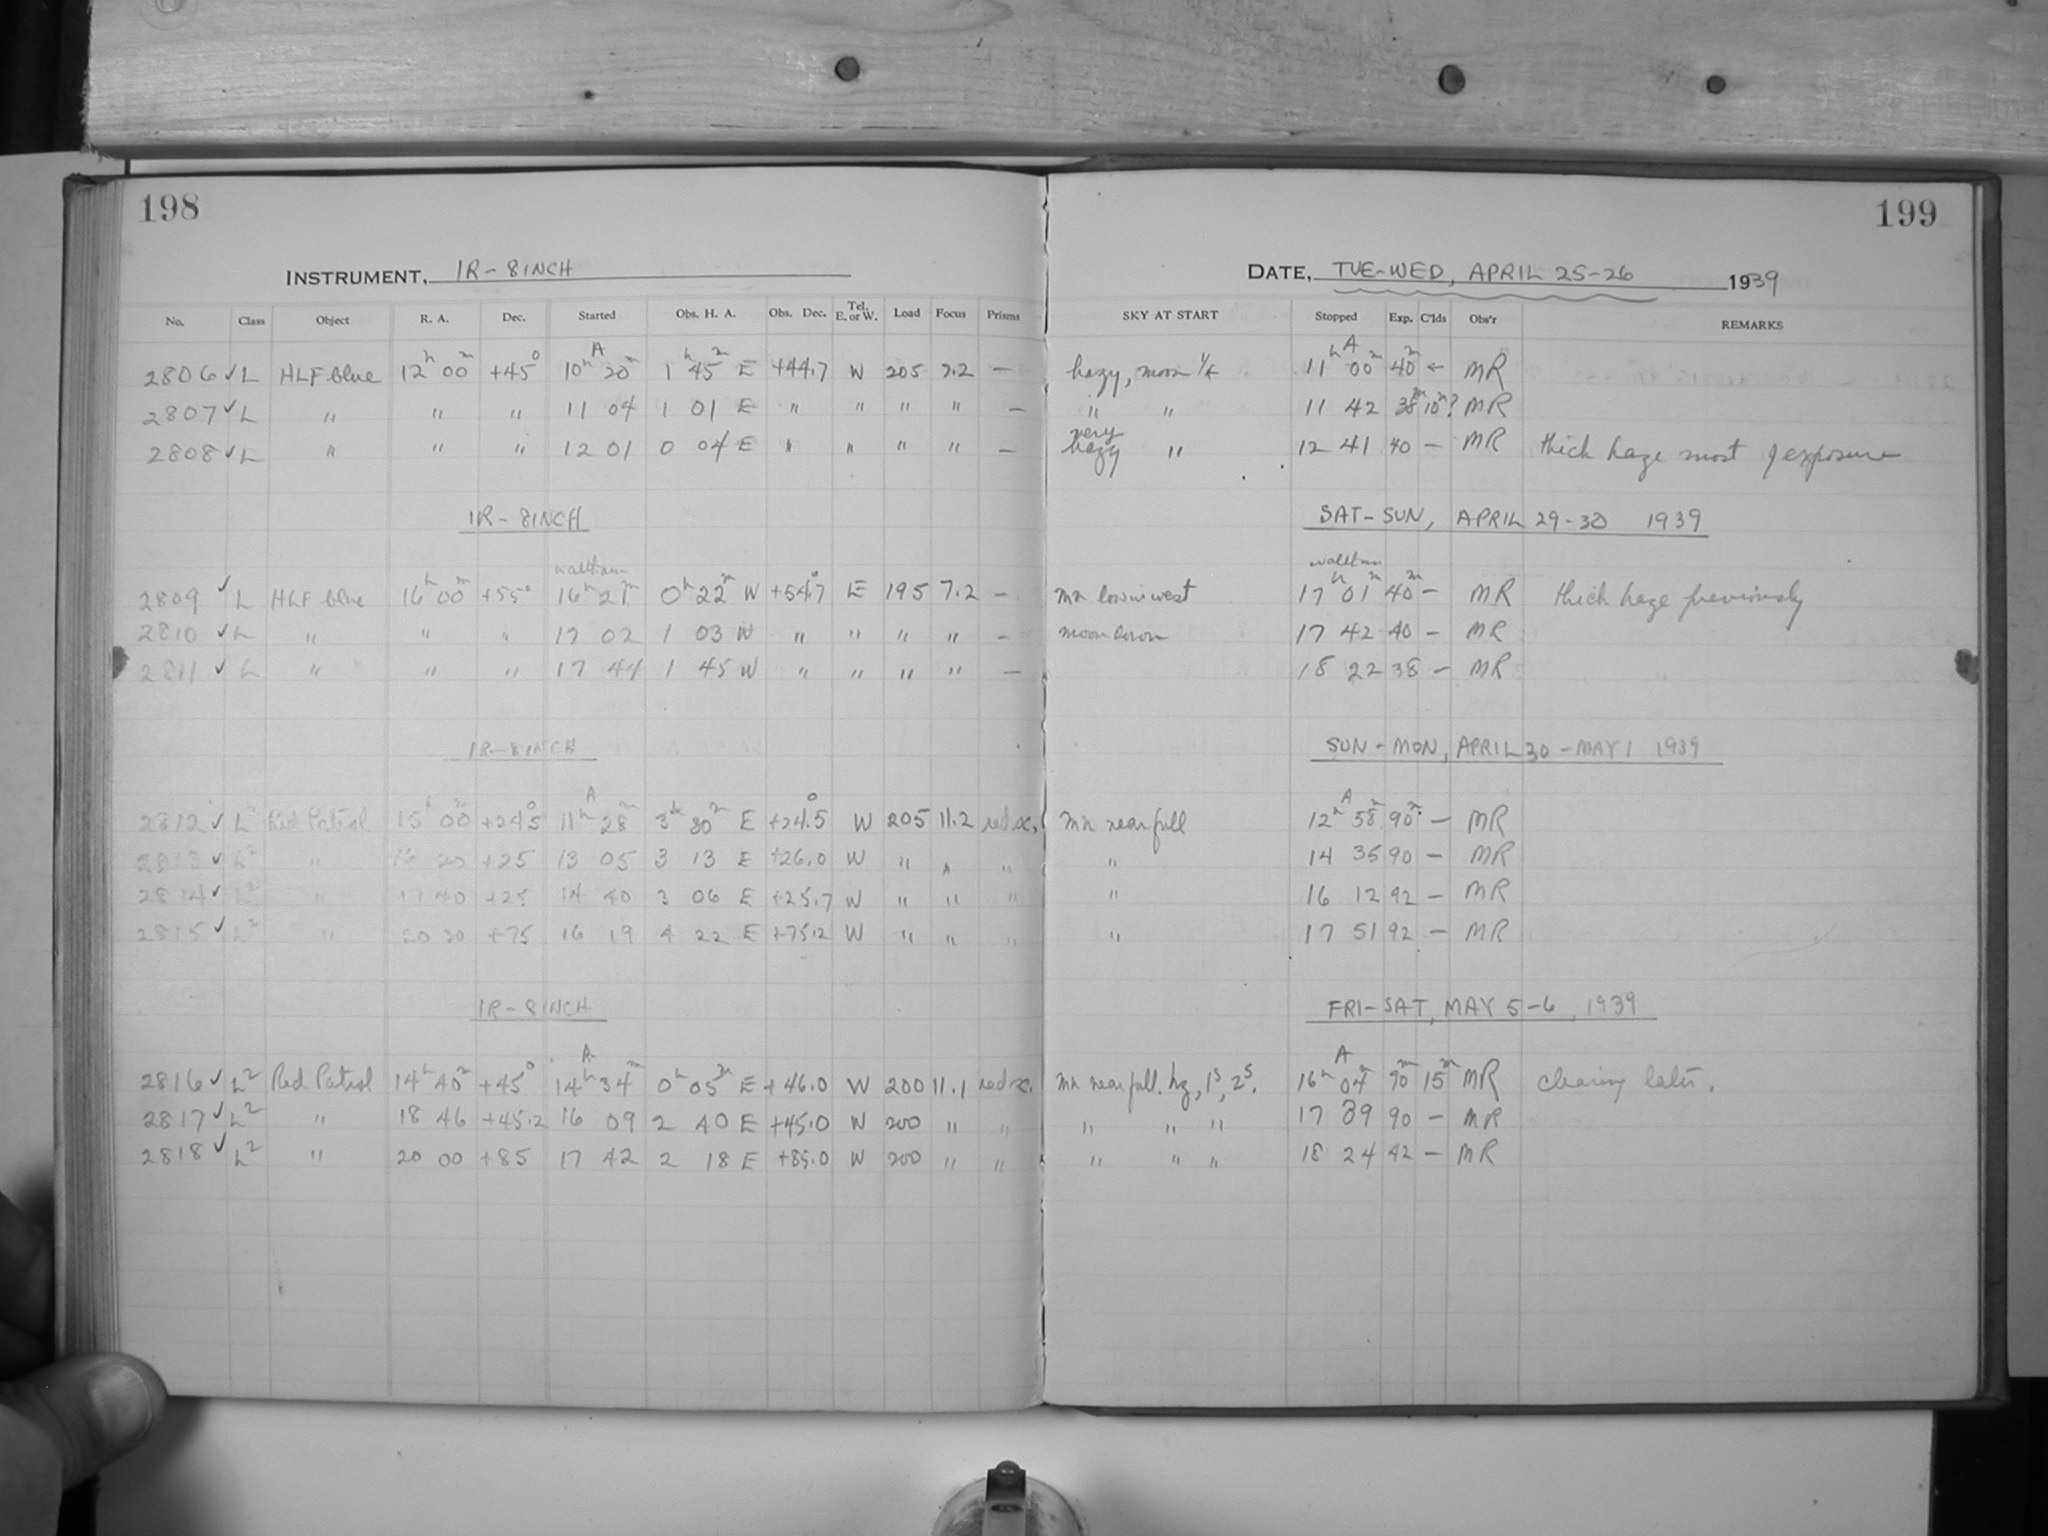 198
199
INSTRUMENT, IR-8INCH
DATE, TUE-WED, APRIL 25-26 1939
No. Class Object R. A. Dec. Started Obs. H. A. Obs. Dec. Tel. E. or W. Load Focus Prisms SKY AT START Stopped Exp. C'lds Obs'r REMARKS
2806 ✓ L HLF blue 12h 00m +45° 10h A 20m 1h 45m E +44.7 W 205 7.2 – hazy, moon 11h A 00m 40m MR
2807 ✓ L " " " 11 04 1 01 E " " " " – " " 11 42 38m 10m? MR
2808 ✓ L " " " 12 01 0 04 E " " " " – very hazy " 12 41 40 – MR thick haze most of exposure
IR-8INCH SAT-SUN, APRIL 29-30 1939
2809 ✓ L HLF blue 16h 00m +55° waltham 16h 21m 0h 22m W +54.7° E 195 7.2 – mn low in west waltham 17h 01m 40m – MR thick haze previously
2810 ✓ L " " " 17 02 1 03 W " " " " – moon down 17 42 40 – MR
2811 ✓ L " " " 17 44 1 45 W " " " " – 18 22 38 – MR
IR-8INCH SUN-MON, APRIL 30-MAY 1 1939
2812 ✓ L² Red Patrol 15h 00m +24.5° 11h A 28m 3h 30m E +24.5° W 205 11.2 red sc. mn near full 12h A 58m 90m – MR
2813 ✓ L² " 20 +25 13 05 3 13 E +26.0 W " " " " 14 35 90 – MR
2814 ✓ L² " 17 40 +25 14 40 3 06 E +25.7 W " " " " 16 12 92 – MR
2815 ✓ L² " 20 20 +75 16 19 4 22 E +75.2 W " " " " 17 51 92 – MR
IR-8INCH FRI-SAT, MAY 5-6, 1939
2816 ✓ L² Red Patrol 14h 40m +45° 14h A 34m 0h 05m E +46.0 W 200 11.1 red sc. mn near full. hz, 1s, 2s. 16h A 04m 90m 15m MR clearing later.
2817 ✓ L² " 18 46 +45.2 16 09 2 40 E +45.0 W 200 " " " " " 17 39 90 – MR
2818 ✓ L² " 20 00 +85 17 42 2 18 E +85.0 W 200 " " " " " 18 24 42 – MR